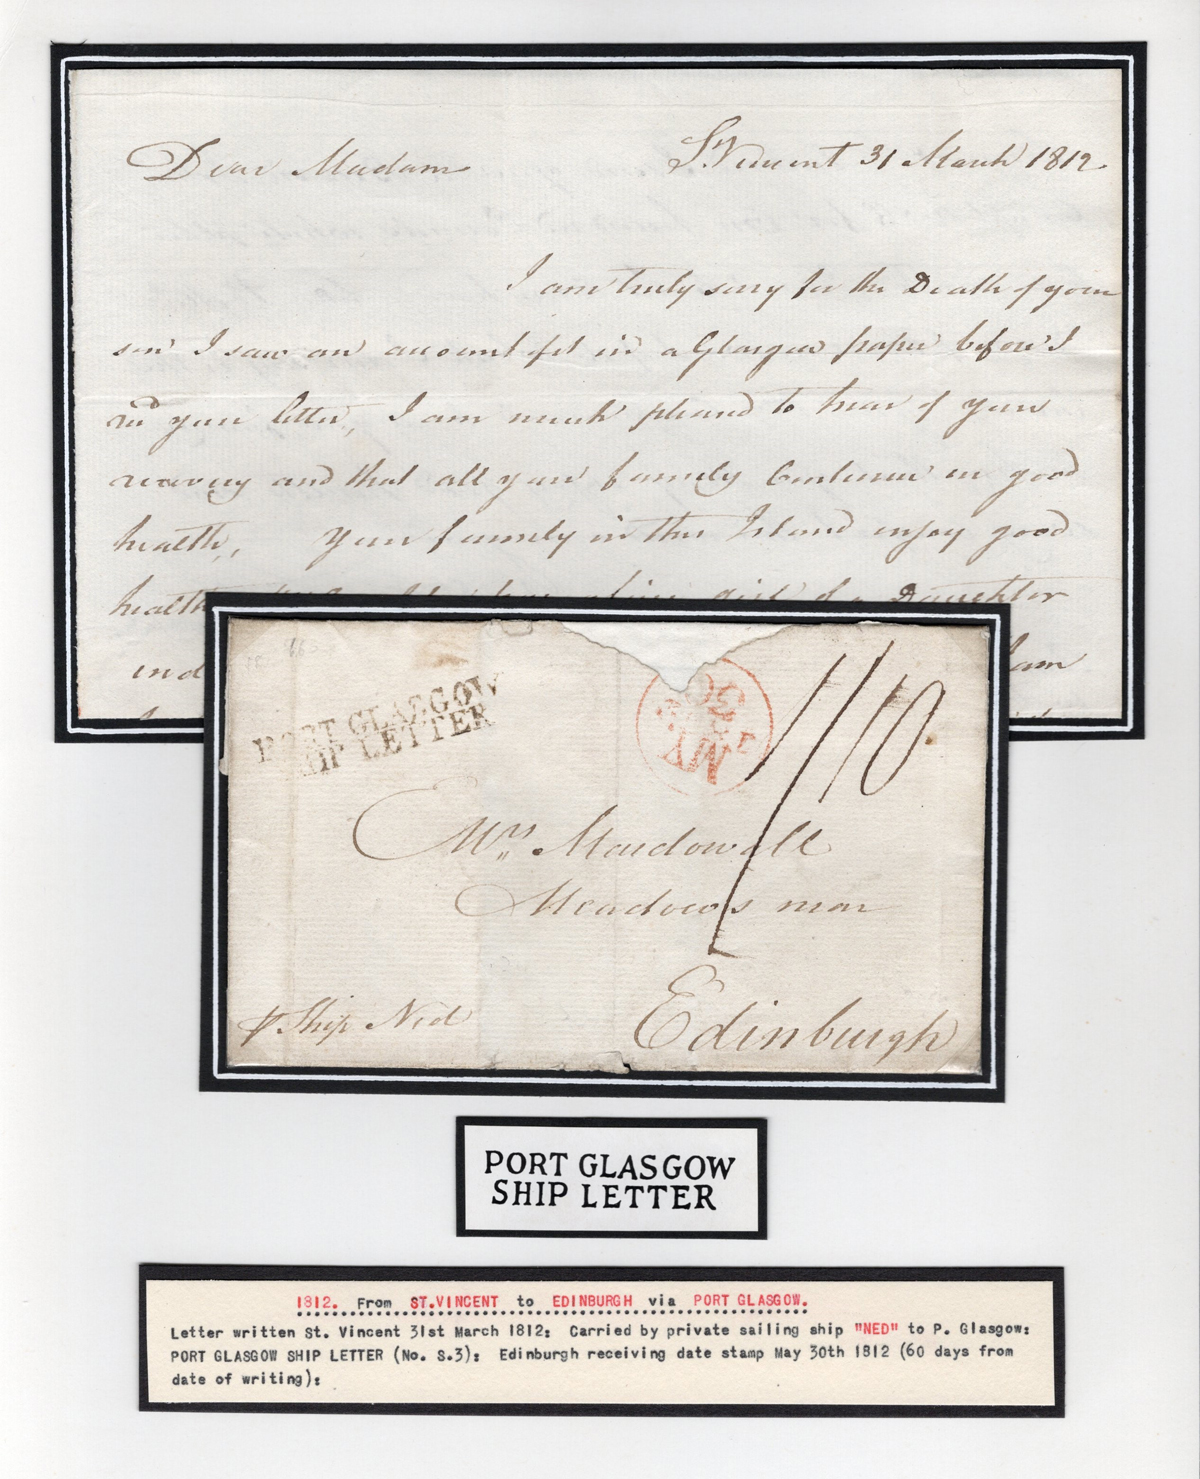 Dear Madam St. Vincent 31 March 1812
I am truly sorry for the Death of your
son I saw an account of it in a Glasgow paper before I
recd your letter, I am much pleased to hear of your
recovery and that all your family Continue in good
health, Your family in this Island enjoy good
health fine girl of a Daughter
am
PORT GLASGOW
SHIP LETTER
MY
30
1/10
Mrs Macdowall
Meadows near
Edinburgh
p Ship Ned
PORT GLASGOW
SHIP LETTER
1812. From ST.VINCENT to EDINBURGH via PORT GLASGOW.
Letter written St. Vincent 31st March 1812: Carried by private sailing ship "NED" to P. Glasgow:
PORT GLASGOW SHIP LETTER (No. S.3): Edinburgh receiving date stamp May 30th 1812 (60 days from
date of writing):